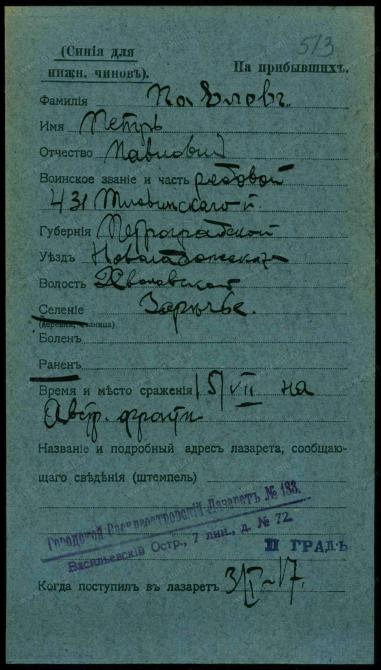 513
(Синія для
нижн. чиновъ).
На прибывшихъ.
Фамилія Павловъ
Имя Петръ
Отчество Павловий
Воинское званіе и часть рядовой
431 Тихвинскаго п.
Губернія Петроградской
Уѣздъ Новоладожска
Волость Хваловской
Селеніе Заручье.
(деревня, станица)
Боленъ
Раненъ
Время и мѣсто сраженія 5/VII на
Австр. фронтѣ
Названіе и подробный адресъ лазарета, сообщаю-
щаго свѣдѣнія (штемпель)
Городской Василеостровскій Лазаретъ № 183.
Васильевскій Остр., 7 лин., д. № 72.
П ГРАДЪ
Когда поступилъ въ лазаретъ 17.